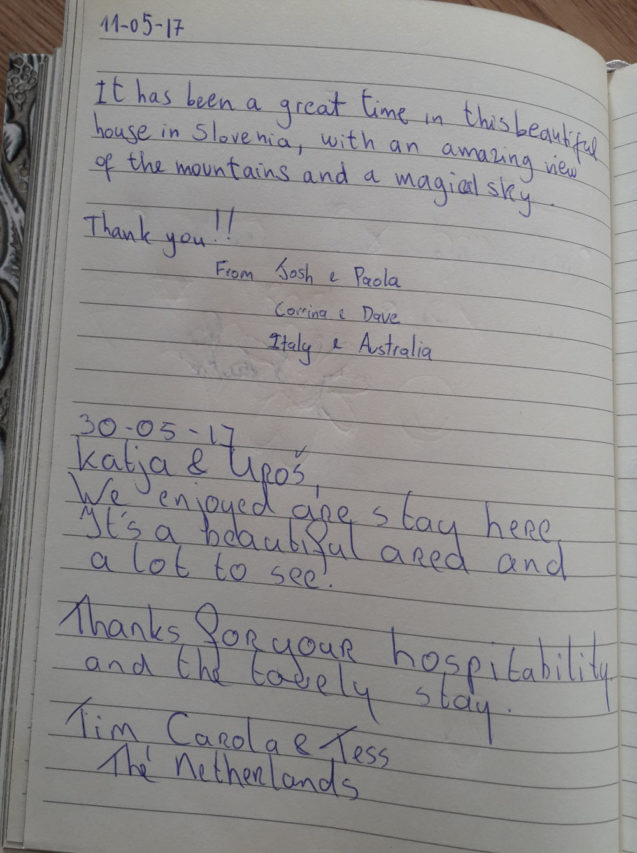 11-05-17
It has been a great time in this beautiful
house in Slovenia, with an amazing view
of the mountains and a magical sky.
Thank you!!
From Josh e Paola
Corrina e Dave
Italy e Australia
30-05-17
Katja & Uroš,
We enjoyed are stay here,
It's a beautiful area and
a lot to see.
Thanks for your hospitability
and the lovely stay.
Tim Carola & Tess
The Netherlands